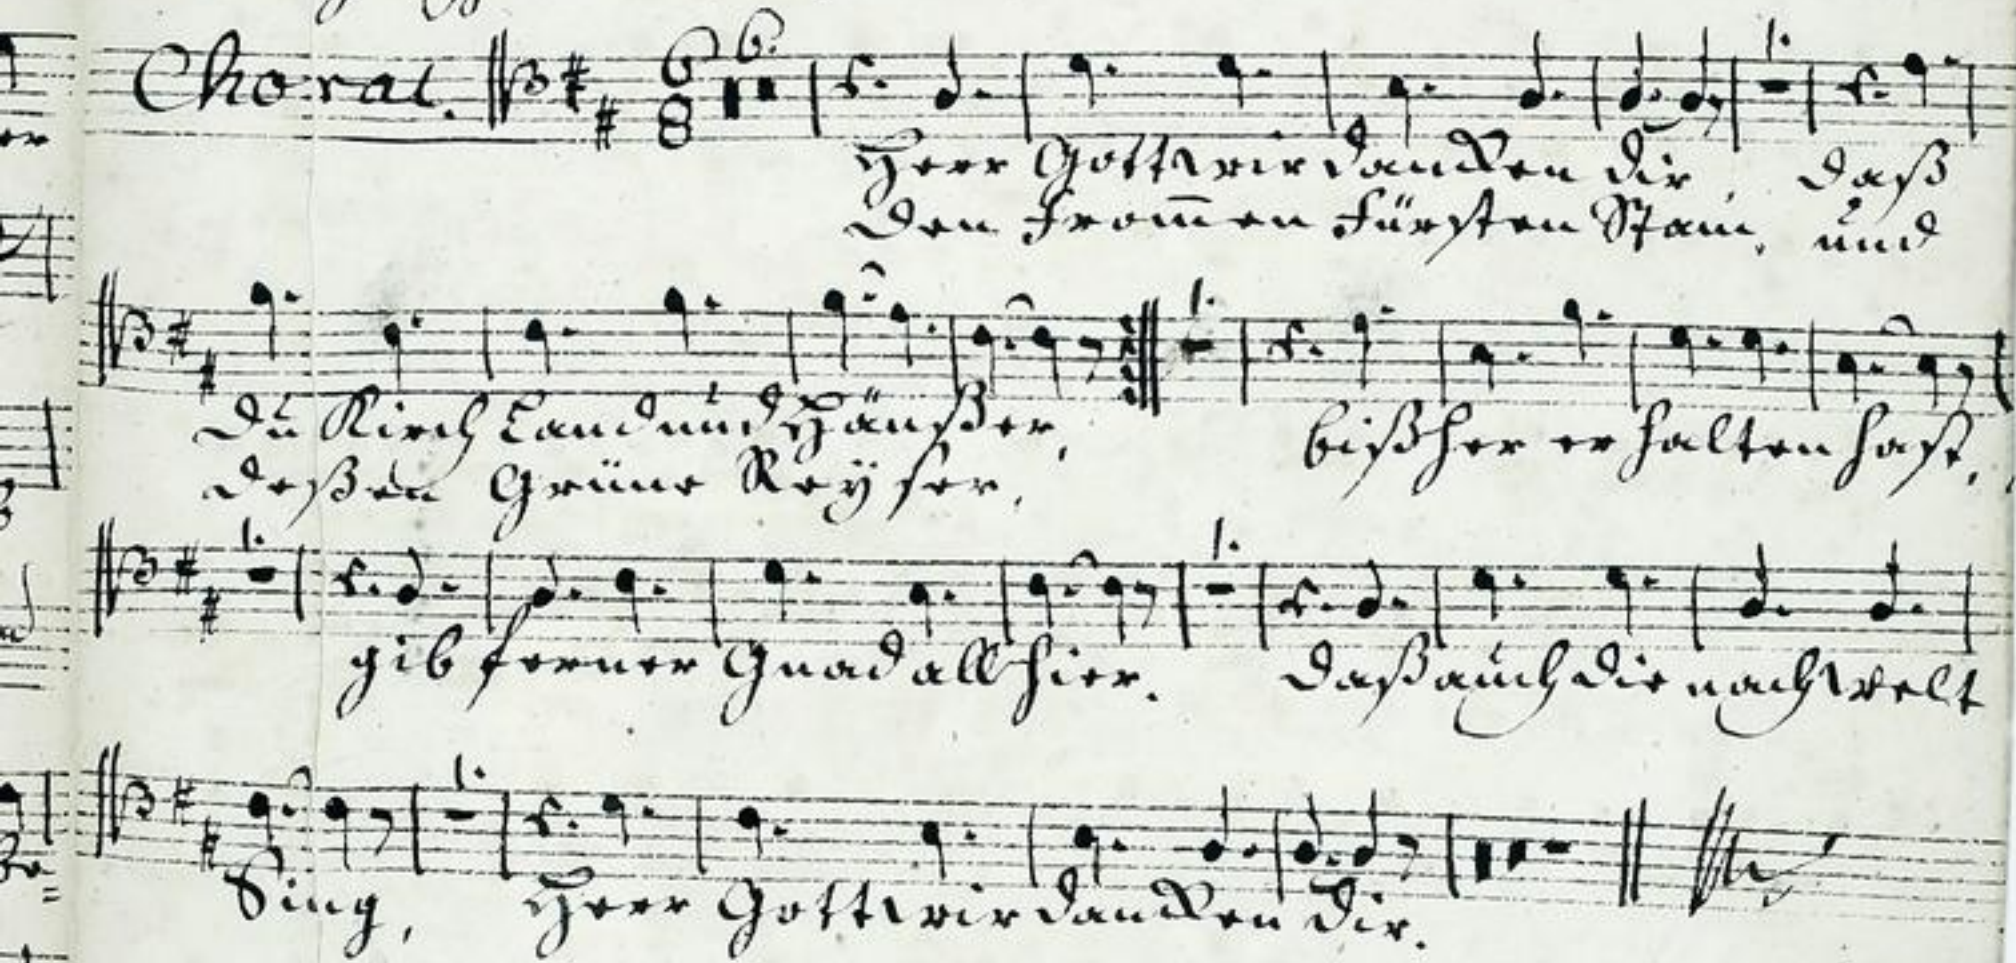 Choral. 6 8 6.
Herr Gott wir dancken dir, daß
den from̅en Fürsten Stam, und
1.
du Kirch Land und Häußer, bißher erhalten hast,
deßen Grüne Reyser,
1.
gib ferner Gnad allhier. daß auch die nachwelt
1.
Sing, Herr Gott wir dancken dir.